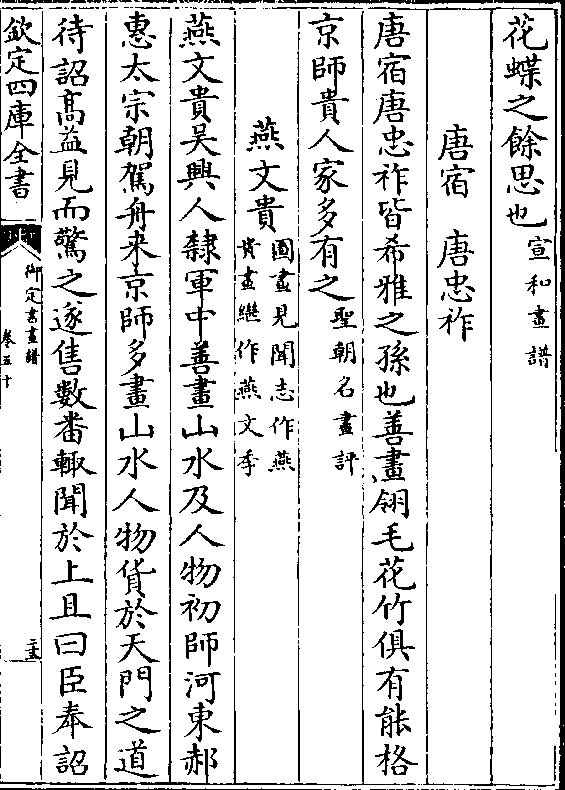 花蝶之餘思也宣和畫譜
唐宿　唐忠祚
唐宿唐忠祚皆希雅之孫也善畫翎毛花竹俱有能格
京師貴人家多有之聖朝名畫評
燕文貴圖畫見聞志作燕
貴畫繼作燕文季
燕文貴吳興人隸軍中善畫山水及人物初師河東郝
惠太宗朝駕舟來京師多畫山水人物貨於天門之道
待詔髙益見而驚之遂售數番輙聞於上且曰臣奉詔
欽定四庫全書
御定書畫譜
卷五十